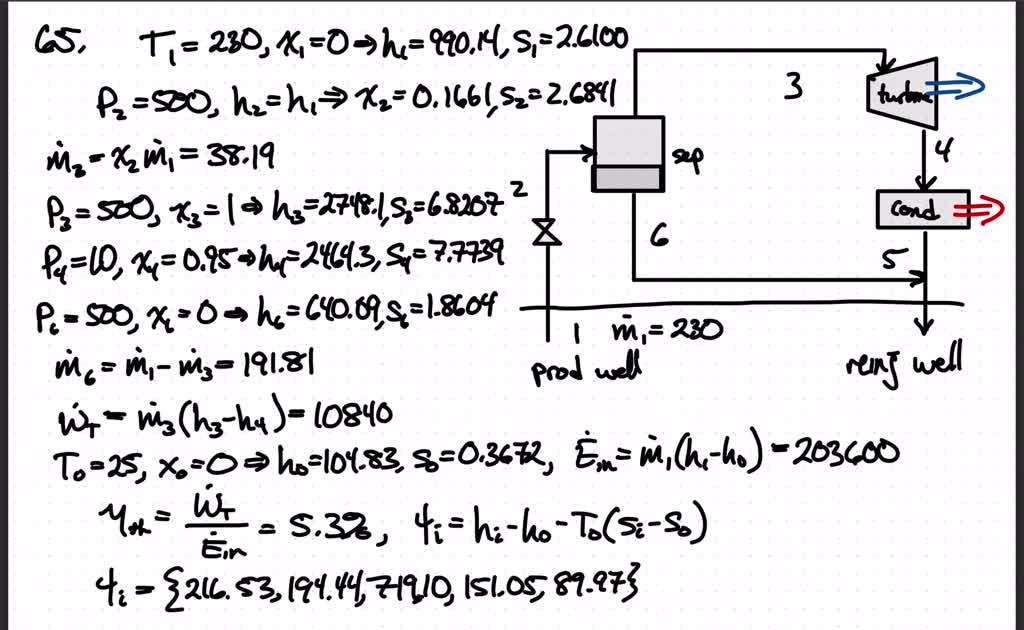 65. T₁ = 230, x₁ = 0 → h₁ = 990.14, s₁ = 2.6100
P₂ = 500, h₂ = h₁ ⇒ x₂ = 0.1661, s₂ = 2.6841
ṁ₃ = x₂ṁ₁ = 38.19
P₃ = 500, x₃ = 1 → h₃ = 2748.1, s₃ = 6.8207
P₄ = 10, x₄ = 0.95 → h₄ = 2464.3, s₄ = 7.7739
P₆ = 500, x₆ = 0 → h₆ = 640.09, s₆ = 1.8604
ṁ₆ = ṁ₁ - ṁ₃ = 191.81
Ẇ_T = ṁ₃(h₃-h₄) = 10840
T₀ = 25, x₀ = 0 ⇒ h₀ = 104.83, s₀ = 0.3672, Ė_in = ṁ₁(h₁-h₀) = 203600
η_th = Ẇ_T / Ė_in = 5.3%, ψᵢ = hᵢ-h₀-T₀(sᵢ-s₀)
ψᵢ = {216.53, 194.44, 719.10, 151.05, 89.97}
3
turbine
4
sep
2
cond
6
5
1 ṁ₁ = 230
prod well
reinj well